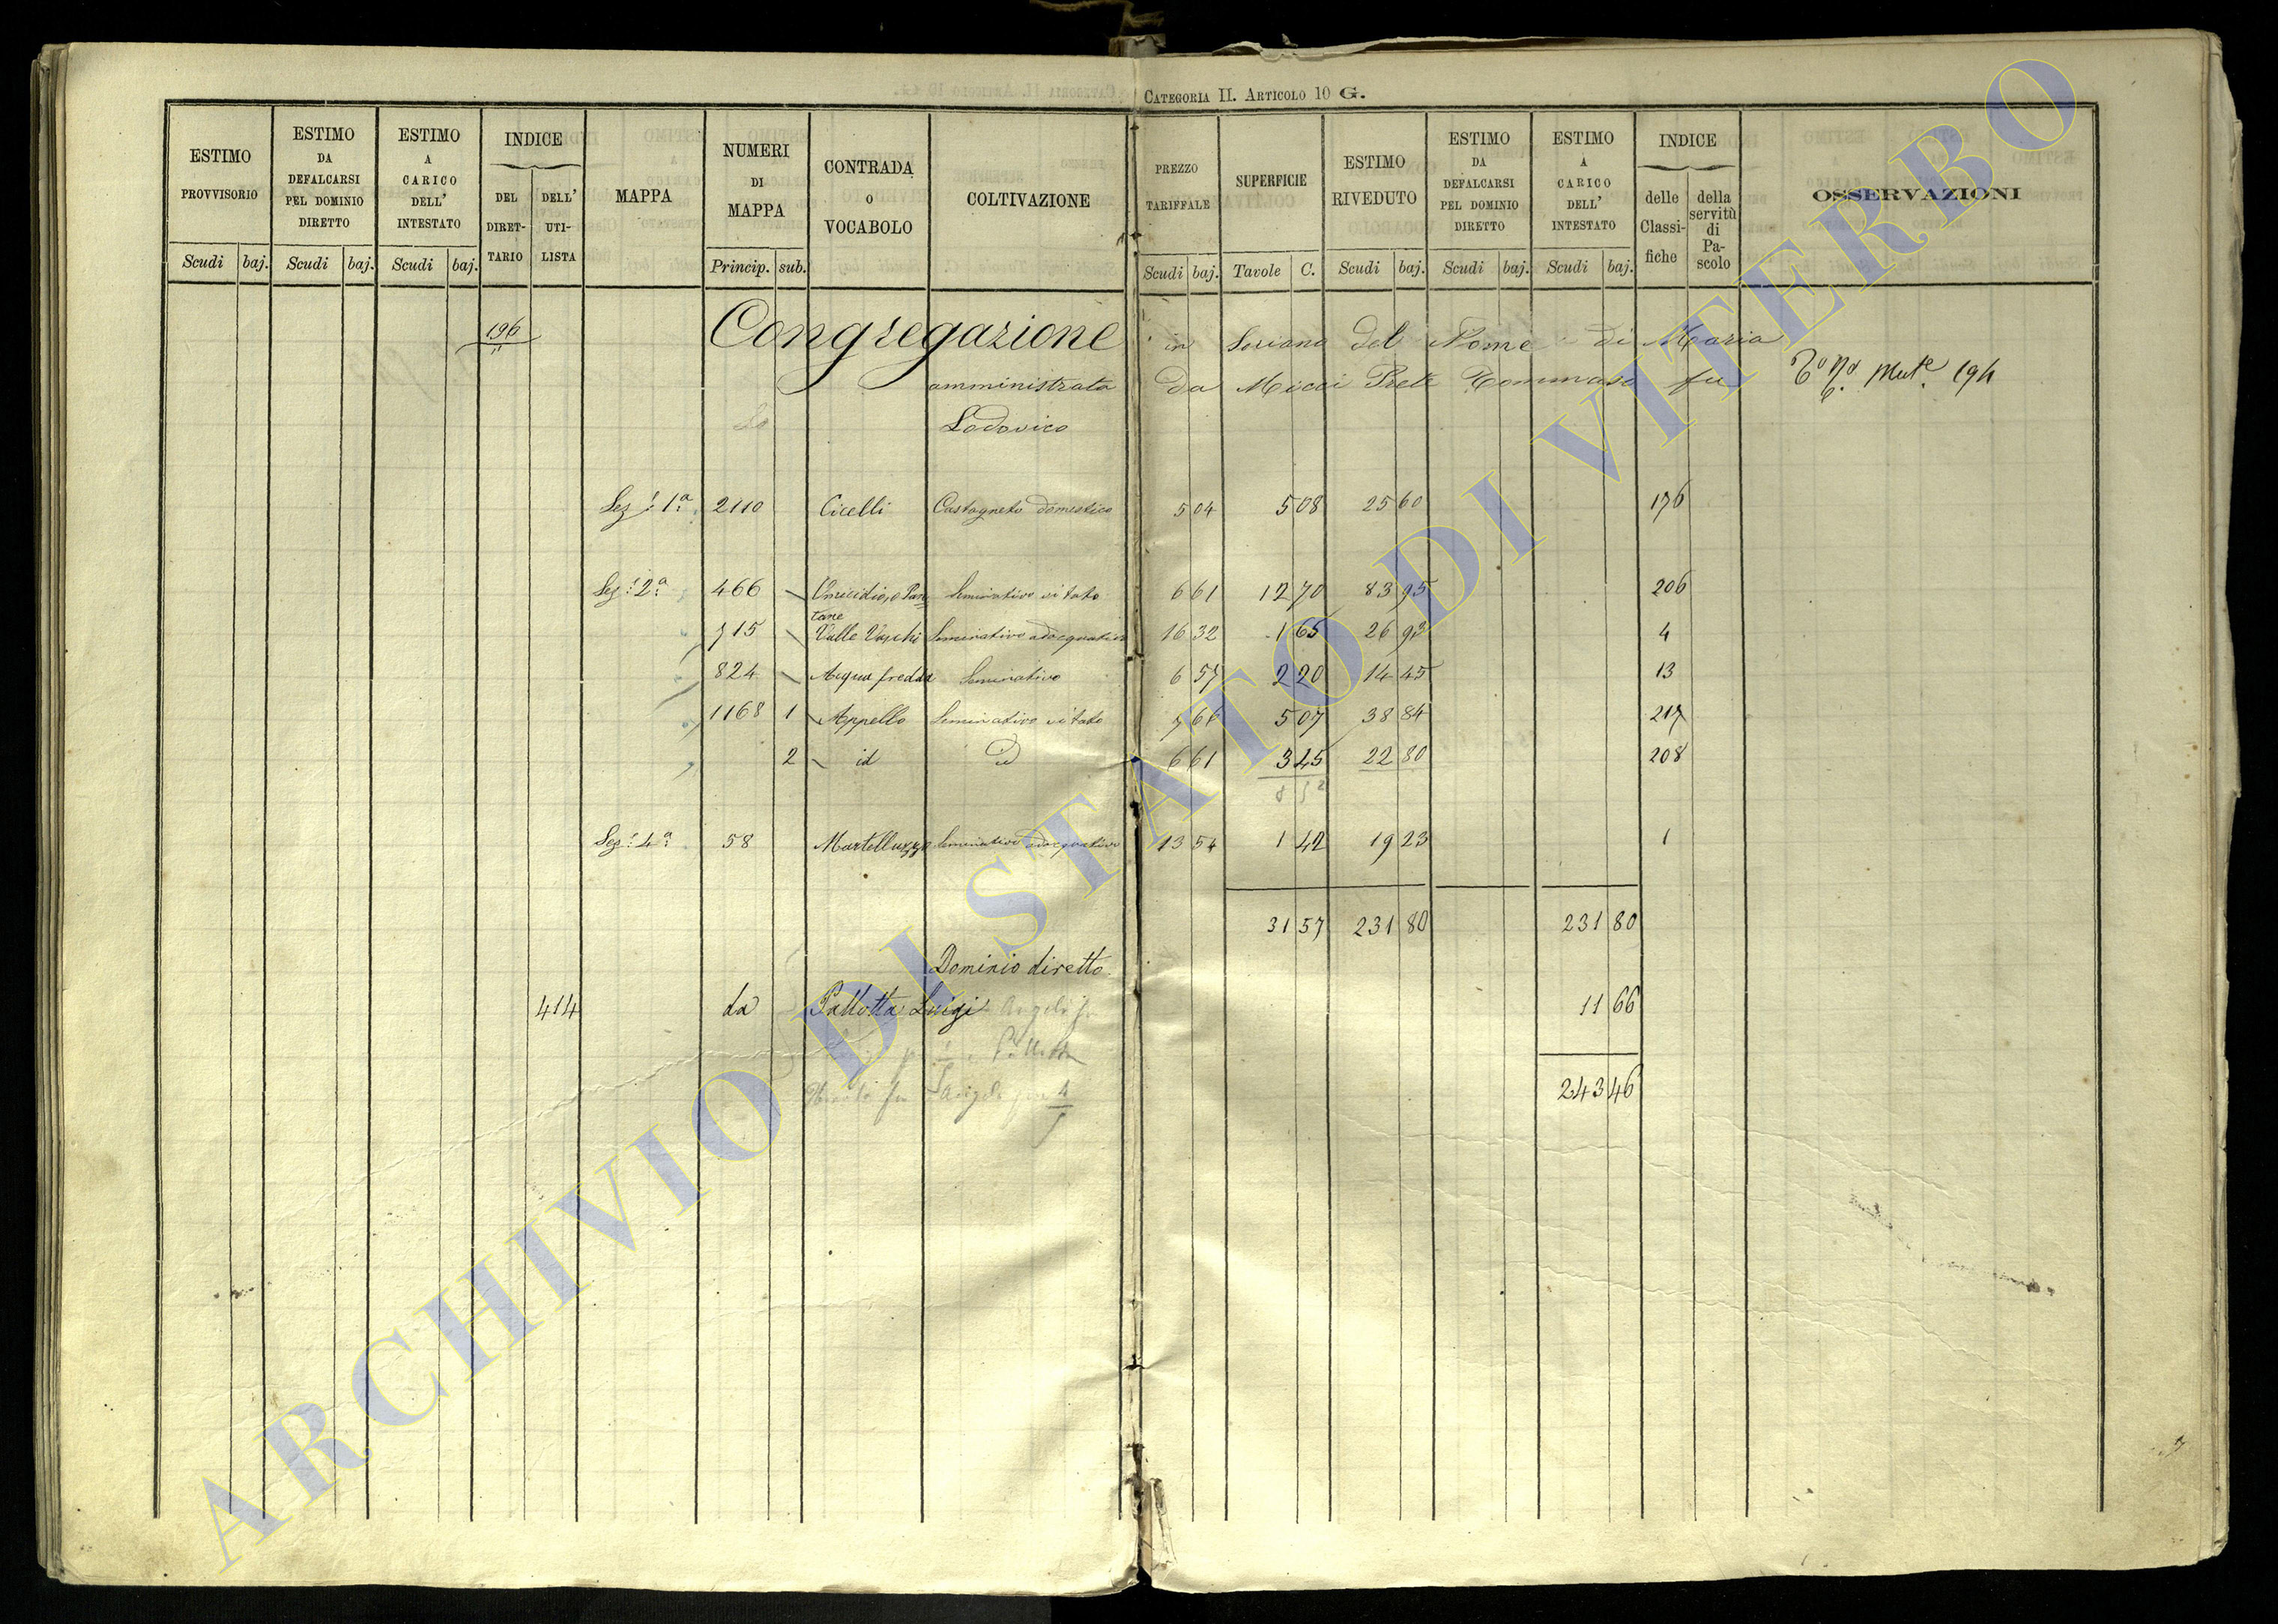 CATEGORIA II. ARTICOLO 10 G.
ESTIMO PROVVISORIO
ESTIMO DA DEFALCARSI PEL DOMINIO DIRETTO
ESTIMO A CARICO DELL' INTESTATO
INDICE
DEL DIRET-TARIO
DELL' UTI-LISTA
MAPPA
NUMERI DI MAPPA
CONTRADA O VOCABOLO
COLTIVAZIONE
PREZZO TARIFFALE
SUPERFICIE
ESTIMO RIVEDUTO
ESTIMO DA DEFALCARSI PEL DOMINIO DIRETTO
ESTIMO A CARICO DELL' INTESTATO
INDICE
delle Classi-fiche
della servitù di Pa-scolo
OSSERVAZIONI
Scudi baj. Scudi baj. Scudi baj. Princip. sub. Scudi baj. Tavole C. Scudi baj. Scudi baj. Scudi baj.
196 Congregazione in Soriano del Nome di Maria
amministrata da Micci Prete Tommaso fu 194
Lodovico
Sez: 1a 2110 Cicelli Castagneto domestico 5 04 5 08 25 60 176
Sez: 2a 466 Seminativo vitato 6 61 12 70 83 95 206
715 Valle Vaschi Seminativo adacquativo 16 32 1 65 26 93 4
824 Acqua fredda Seminativo 6 57 2 20 14 45 13
1168 1 Appello Seminativo vitato 7 66 5 07 38 84 217
2 id 6 61 3 45 22 80 208
Sez: 4a 58 Martelluzzo Seminativo adacquativo 13 54 1 42 19 23 1
31 57 231 80 231 80
Dominio diretto
414 da Pallotta Luigi 11 66
243 46
ARCHIVIO DI STATO DI VITERBO